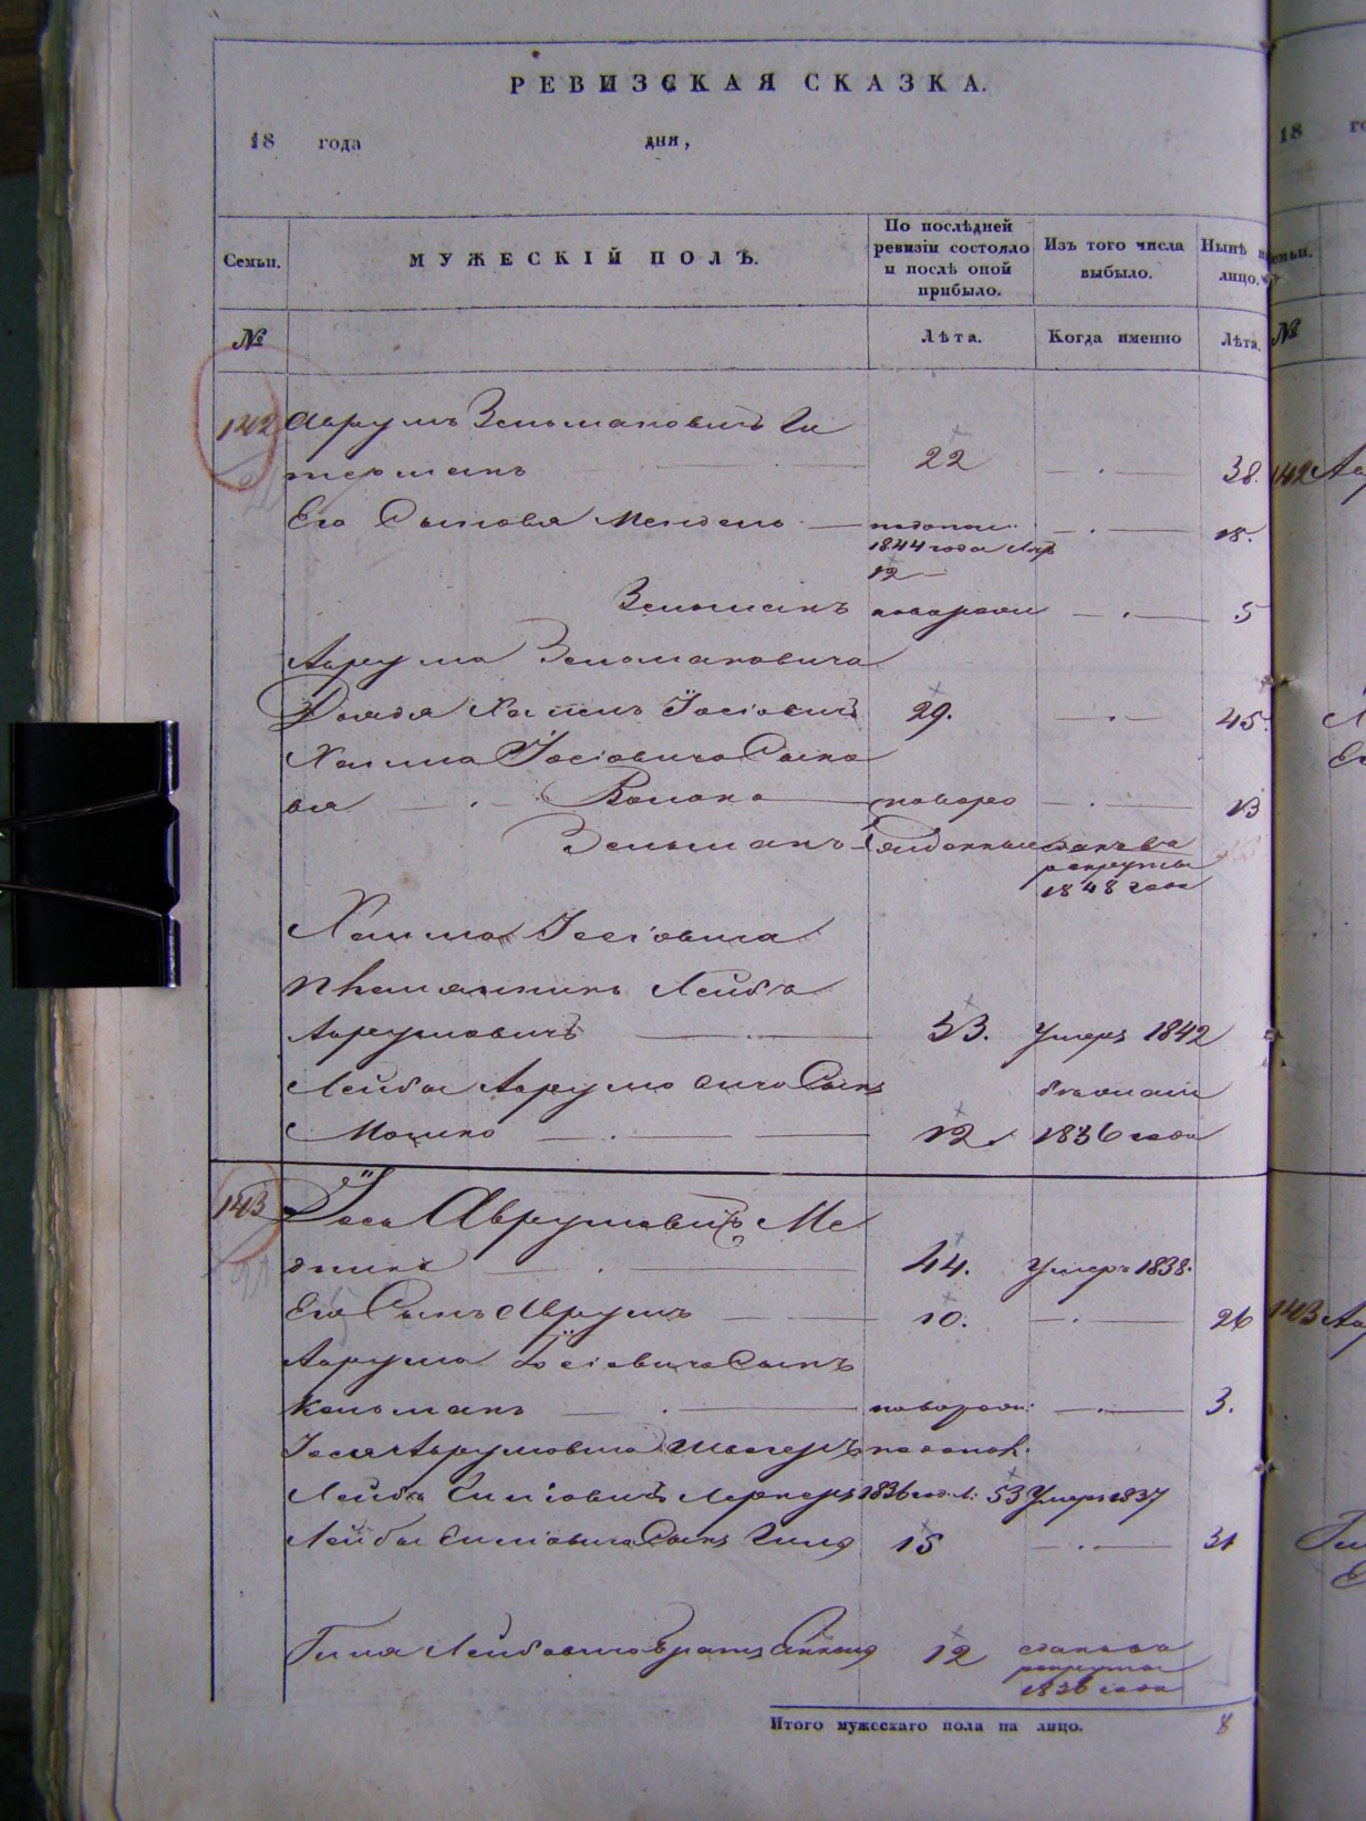 РЕВИЗСКАЯ СКАЗКА.
18 года дня,
Семьи.
МУЖЕСКІЙ ПОЛЪ.
По послѣдней ревизіи состояло и послѣ оной прибыло.
Изъ того числа выбыло.
Нынѣ
лицо.
№
Лѣта.
Когда именно
Лѣта.
142 Аврумъ Зельмановичъ Ги
терманъ 22 38.
Его Сыновья Мендель 18.
1844 года Лѣтъ
12
Зельманъ новорожд 5
Аврума Зельмановича
Дядя Хаимъ Іосіовичъ 29. 45.
Хаима Іосіовича Сыно
вья новорож 13
Зельманъ сданъ въ
рекруты
1848 года
Хаима Іосіовича
племянникъ Лейба
Аврумовичъ 53. Умеръ 1842
Лейбы Аврумовича Сынъ
Мошко 12 1836 года
143 Іось Аврумовичъ Ме
дникъ 44. Умеръ 1838.
Его Сынъ Аврумъ 10. 26
Аврума Іосіовича Сынъ
Кельманъ новорож: 3.
Іося Аврумовича Швагеръ
Лейба Лернеръ 1836 год. Л: 53 Умеръ 1837
Лейбы Сынъ 15 31
Лейбовича братъ 12 сданъ въ
рекруты
1836 года
Итого мужескаго пола на лицо. 8
18
№
142
143